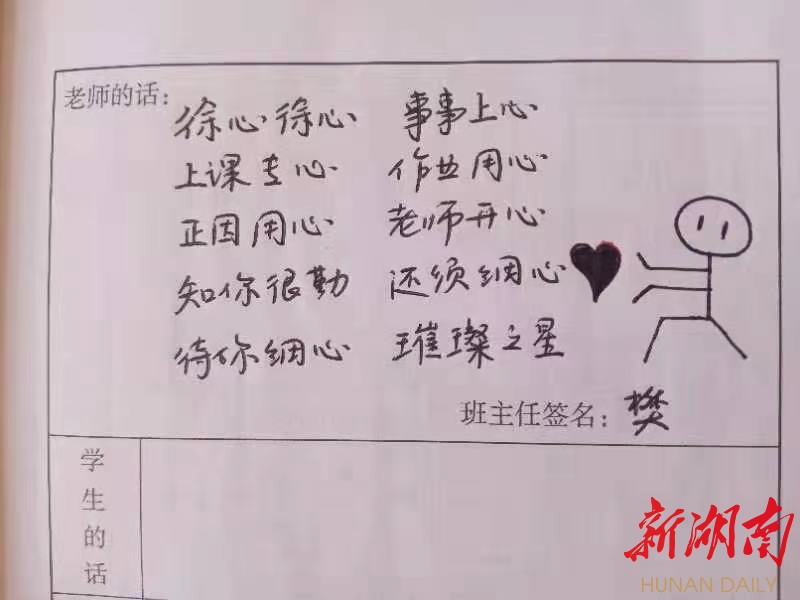 老师的话：
徐心徐心 事事上心
上课专心 作业用心
正因用心 老师开心
知你很勤 还须细心
待你细心 璀璨之星
班主任签名：樊
学生的话
新湖南
HUNAN DAILY